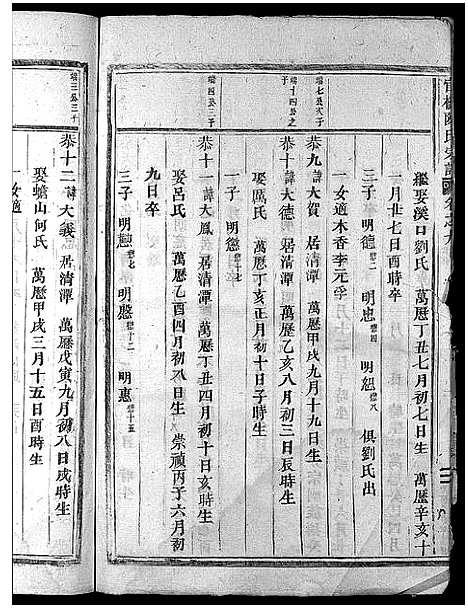 繼娶溪口劉氏 萬歷丁丑七月初七日生 萬歷辛亥十
一月廿七日酉時卒
三子 明德 懋二 明忠 懋四 明恕 懋八 俱劉氏出
一女適木香李元孚
端七公次子
恭九 諱大賀 居清潭 萬歷甲戌九月十九日生
端十四公之子
恭十 諱大德 居清潭 萬歷乙亥八月初三日辰時生
娶厲氏 萬歷丁亥正月初十日子時生
一子 明德 懋十七
端四公三子
恭十一 諱大鳳 居清潭 萬歷丁丑四月初十日亥時生
娶呂氏 萬歷乙酉四月初八日生 崇禎丙子六月初
九日卒
三子 明懋七 明懋十二 明惠 懋十五
端三公三子
恭十二 諱大義 居清潭 萬歷戊寅九月初八日戌時生
娶蟾山何氏 萬歷甲戌三月十五日酉時生
一女適